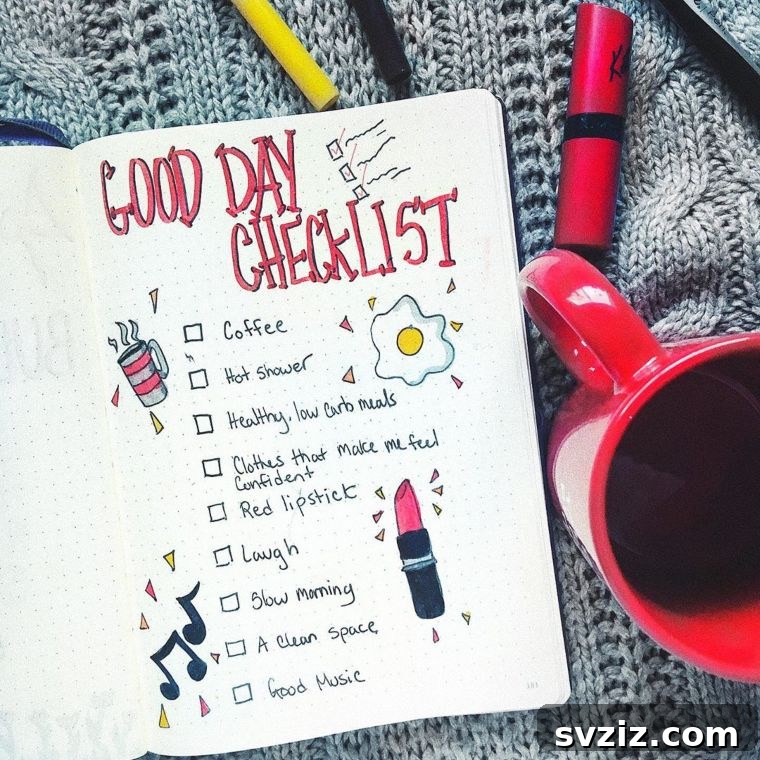 GOOD DAY
CHECKLIST
Coffee
Hot shower
Healthy, low carb meals
Clothes that make me feel
confident
Red lipstick
Laugh
Slow morning
A clean space
Good Music
svziz.com